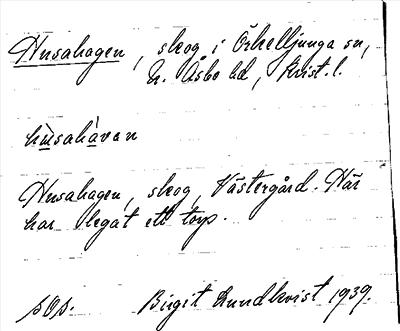 Husahagen, skog i Örkelljunga sn,
N. Åsbo hd, Krist. l.
hùsahàvan
Husahagen, skog, Västergård. Här
har legat ett torp.
sOs. Birgit Lundkvist 1939.